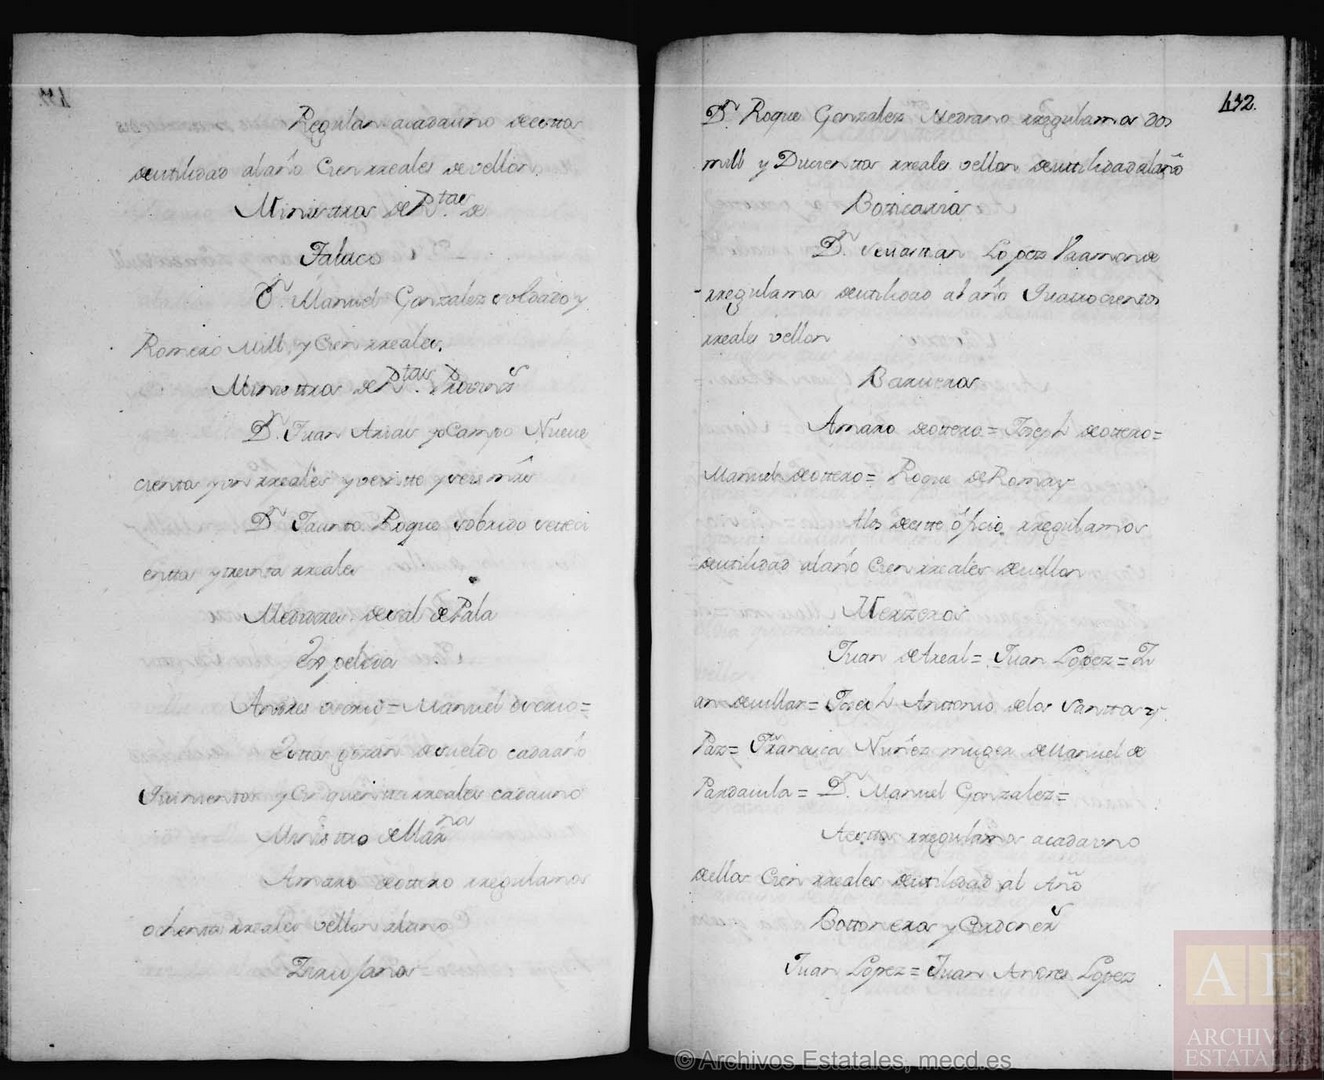 Regulan acadauno deestos
deutilidad alaño Cien rreales devellon
Ministros de Rtas de
Palacio
Dn. Manuel Gonzalez soldado y
Romero Mill y Cien rreales.
Ministros de Rtas. Provins
Dn. Juan Arias y oCampo Nueue
cientos y un rreales y veintto y seis mrs
Dn. Jacinto Roque sobrido settesi
enttos y treinta rreales
Medidores desal de Pala
En peleda
Andres osorio = Manuel osorio =
Estos gozan desueldo cadaaño
Quinientos y Cinquentta rreales cadauno
Ministro deMarna
Amaro deottero rregulamos
ochenta rreales vellon alaño
Zirujanos
432.
Dn. Roque Gonzalez Medrano rregulamos dos
mill y Ducientos rreales vellon deutilidad alaño
Botticarios
Dn. Seuastian Lopez Vaamonde
rregulamos deutilidad alaño Quattrocientos
rreales vellon
Barueros
Amaro deottero = Joseph deottero =
Manuel deottero = Roque deRomay
Alos deeste oficio rregulamos
deutilidad alaño Cien rreales deuellon
Merzeros
Juan deAreal = Juan Lopez = Ju
an deuillar = Joseph Anttonio delos Santtos y
Paz = Franzisca Nuñez muger deManuel de
Pardauila = Dn. Manuel Gonzalez =
Aestos rregulamos acadauno
dellos Cien rreales deutilidad al Año
Bottoneros y Cordoners
Juan Lopez = Juan Andres Lopez
© Archivos Estatales, mecd.es
AE
ARCHIVOS
ESTATALES